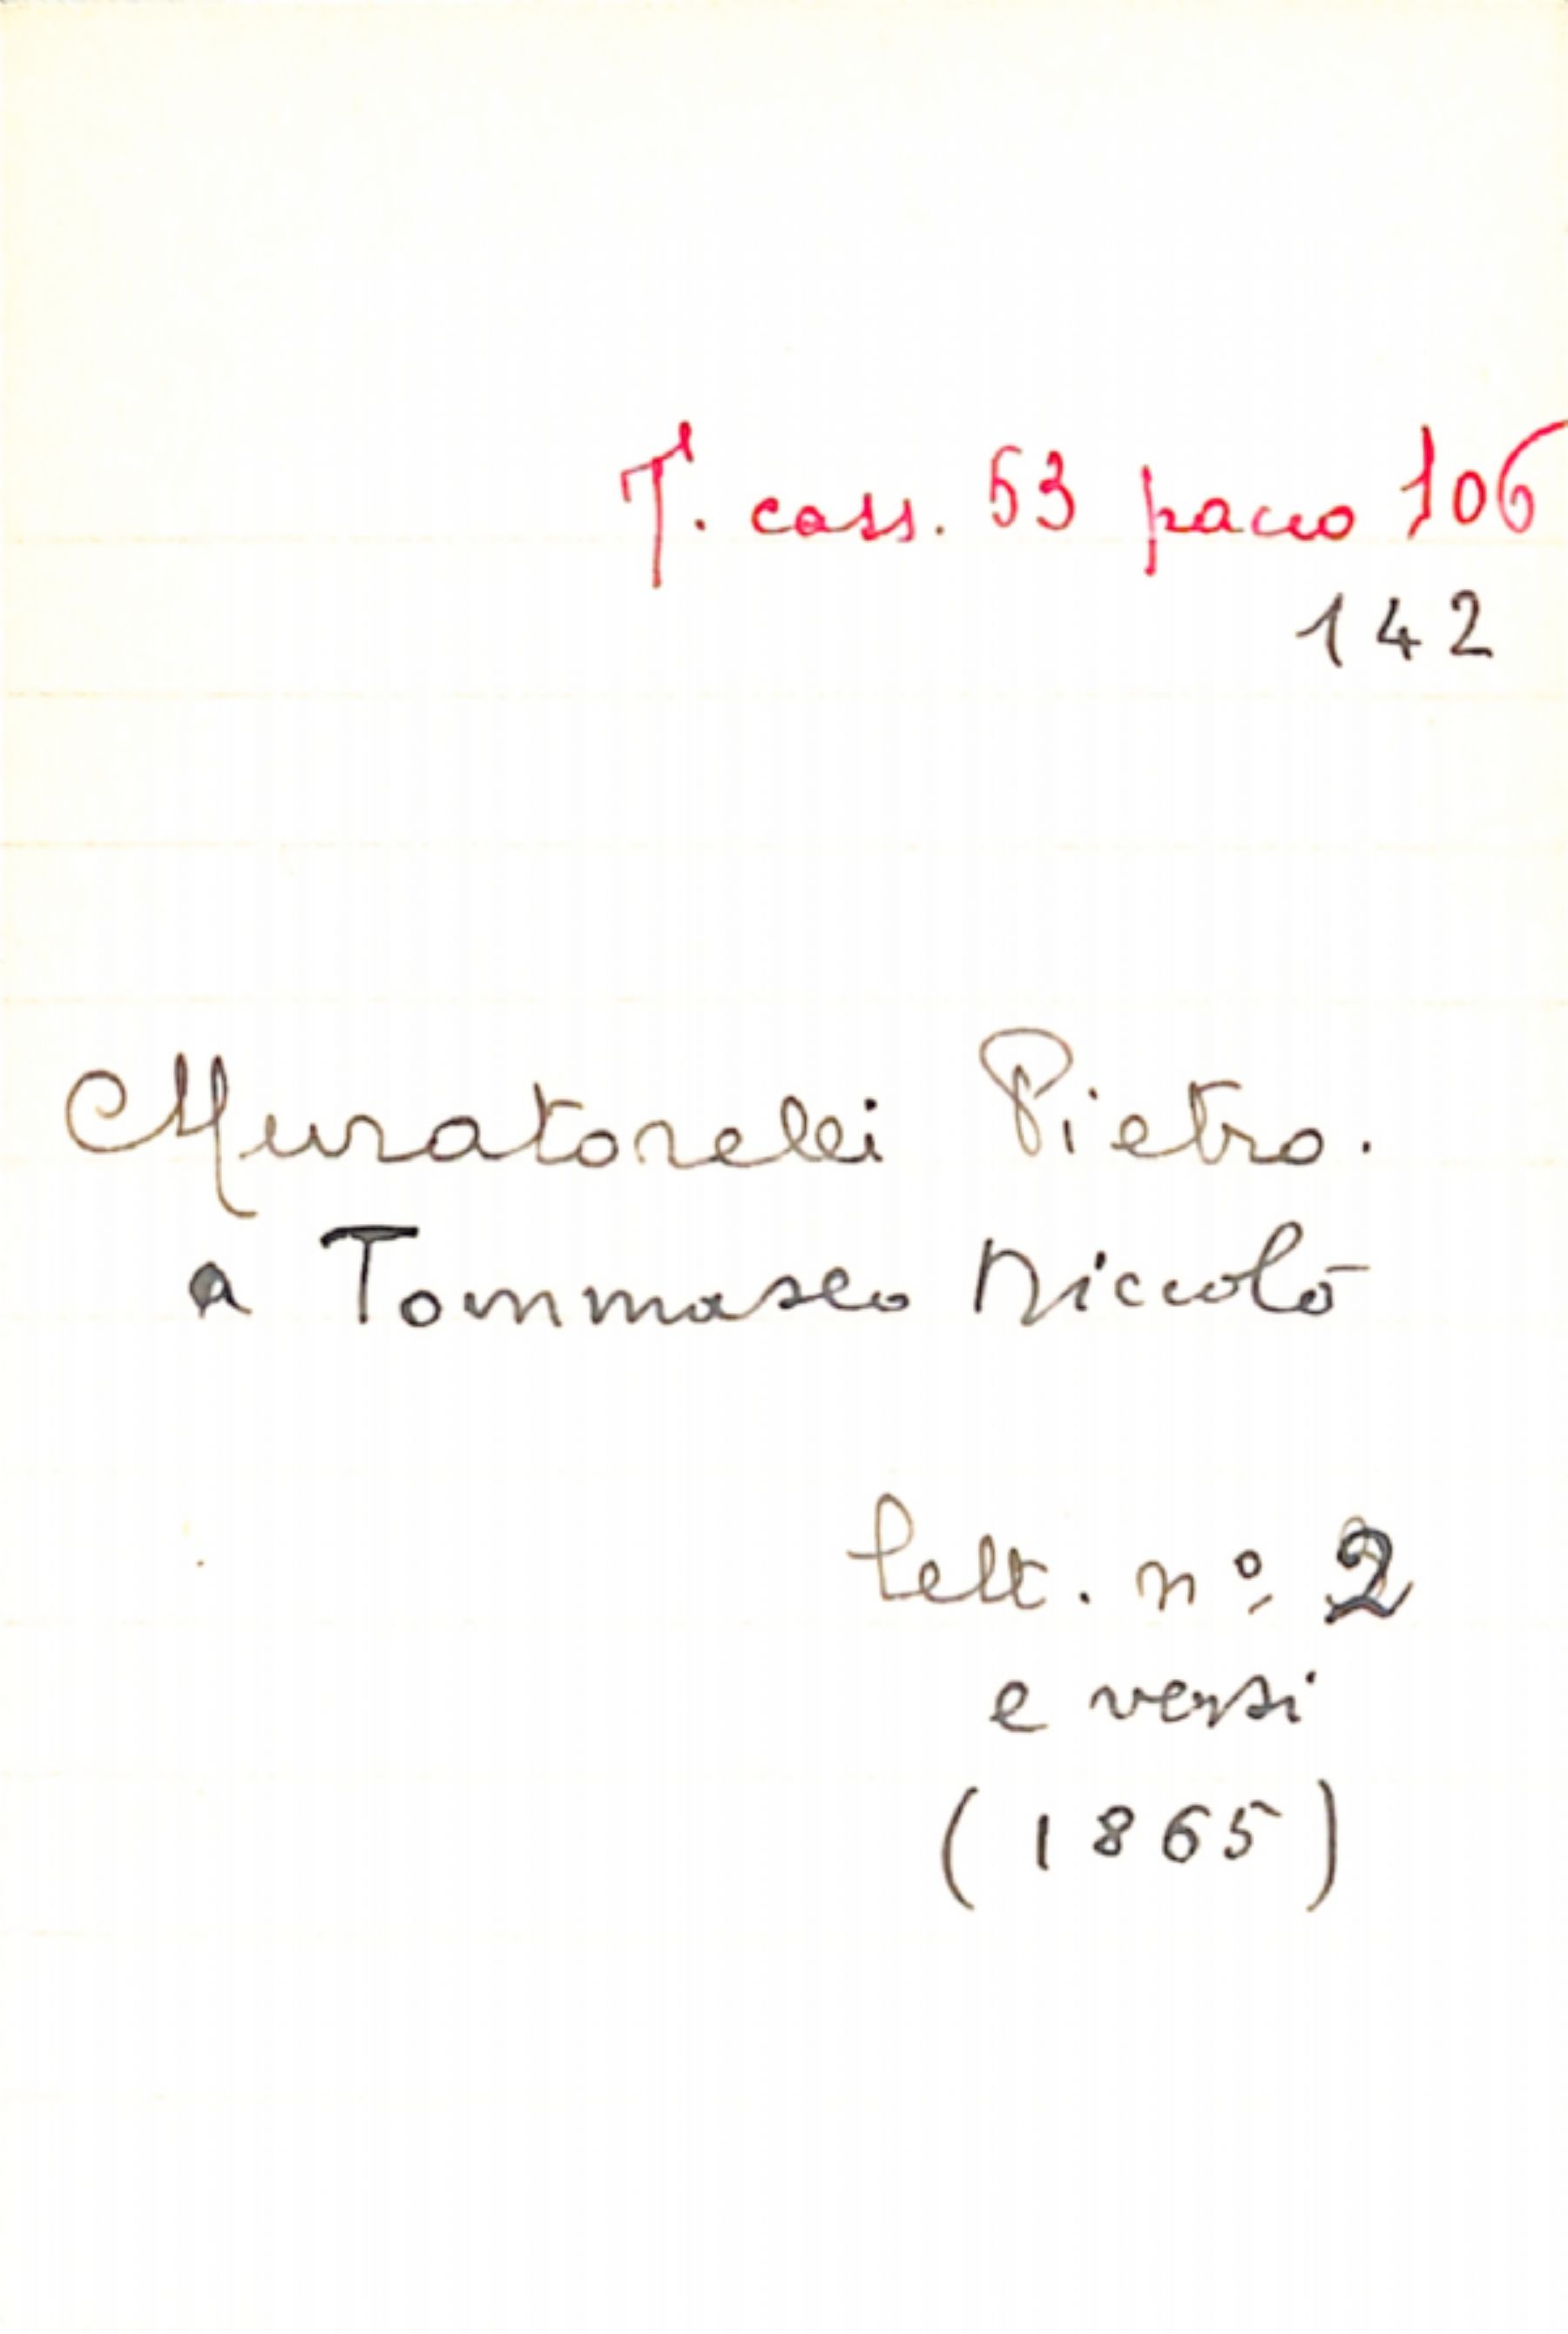 T. cass. 53 pacco 106
142
Muratorelli Pietro.
a Tommaseo Niccolò
lett. nº 2
e versi
(1865)